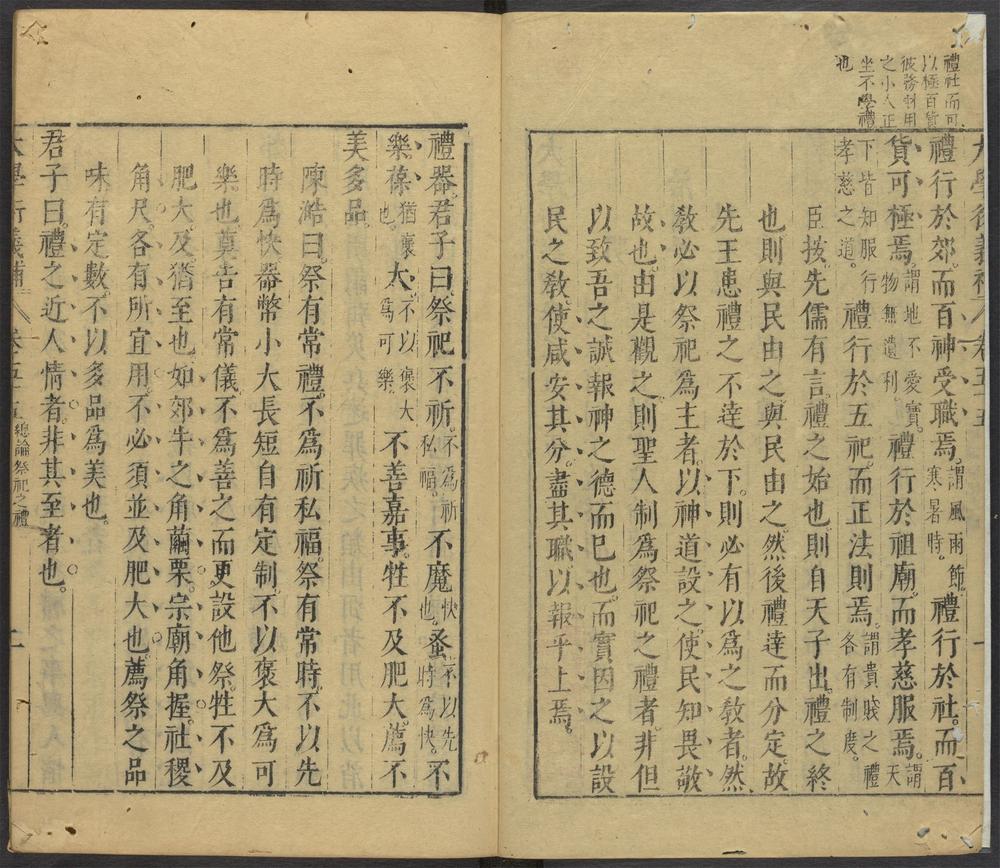 禮社而可
以極百貨
彼務財用
之小人正
坐不學禮
也
大學衍義補 卷五十五 一
禮行於郊而百神受職焉謂風雨節寒暑時禮行於社而百
貨可極焉謂地不愛寶物無遺利禮行於祖廟而孝慈服焉謂天
下皆知服行孝慈之道禮行於五祀而正法則焉謂貴賤之禮各有制度
臣按先儒有言禮之始也則自天子出禮之終
也則與民由之與民由之然後禮達而分定故
先王患禮之不達於下則必有以爲之教者然
教必以祭祀爲主者以神道設之使民知畏敬
故也由是觀之則聖人制爲祭祀之禮者非但
以致吾之誠報神之德而巳也而實因之以設
民之教使咸安其分盡其職以報乎上焉
禮器君子曰祭祀不祈不爲祈私福不麾快也蚤不以先時爲快不
樂葆猶褒也大不以褒大爲可樂不善嘉事牲不及肥大薦不
美多品
陳澔曰祭有常禮不爲祈私福祭有常時不以先
時爲快器幣小大長短自有定制不以褒大爲可
樂也奠告有常儀不爲善之而更設他祭牲不及
肥大及猶至也如郊牛之角繭栗宗廟角握社稷
角尺各有所宜用不必須並及肥大也薦祭之品
味有定數不以多品爲美也
君子曰禮之近人情者非其至者也
大學衍義補 卷五十五 總論祭祀之禮 二